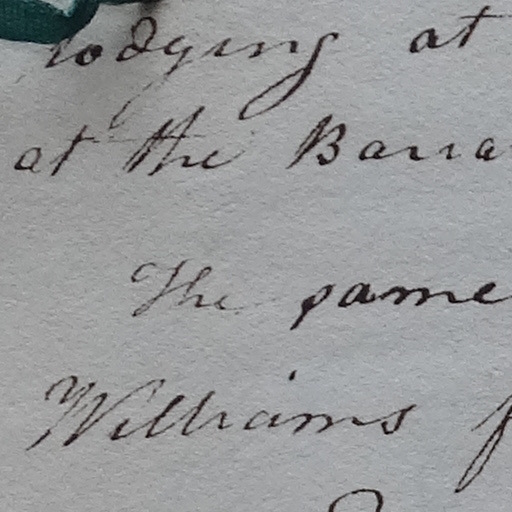 lodging at
at the Barra
The same
Williams